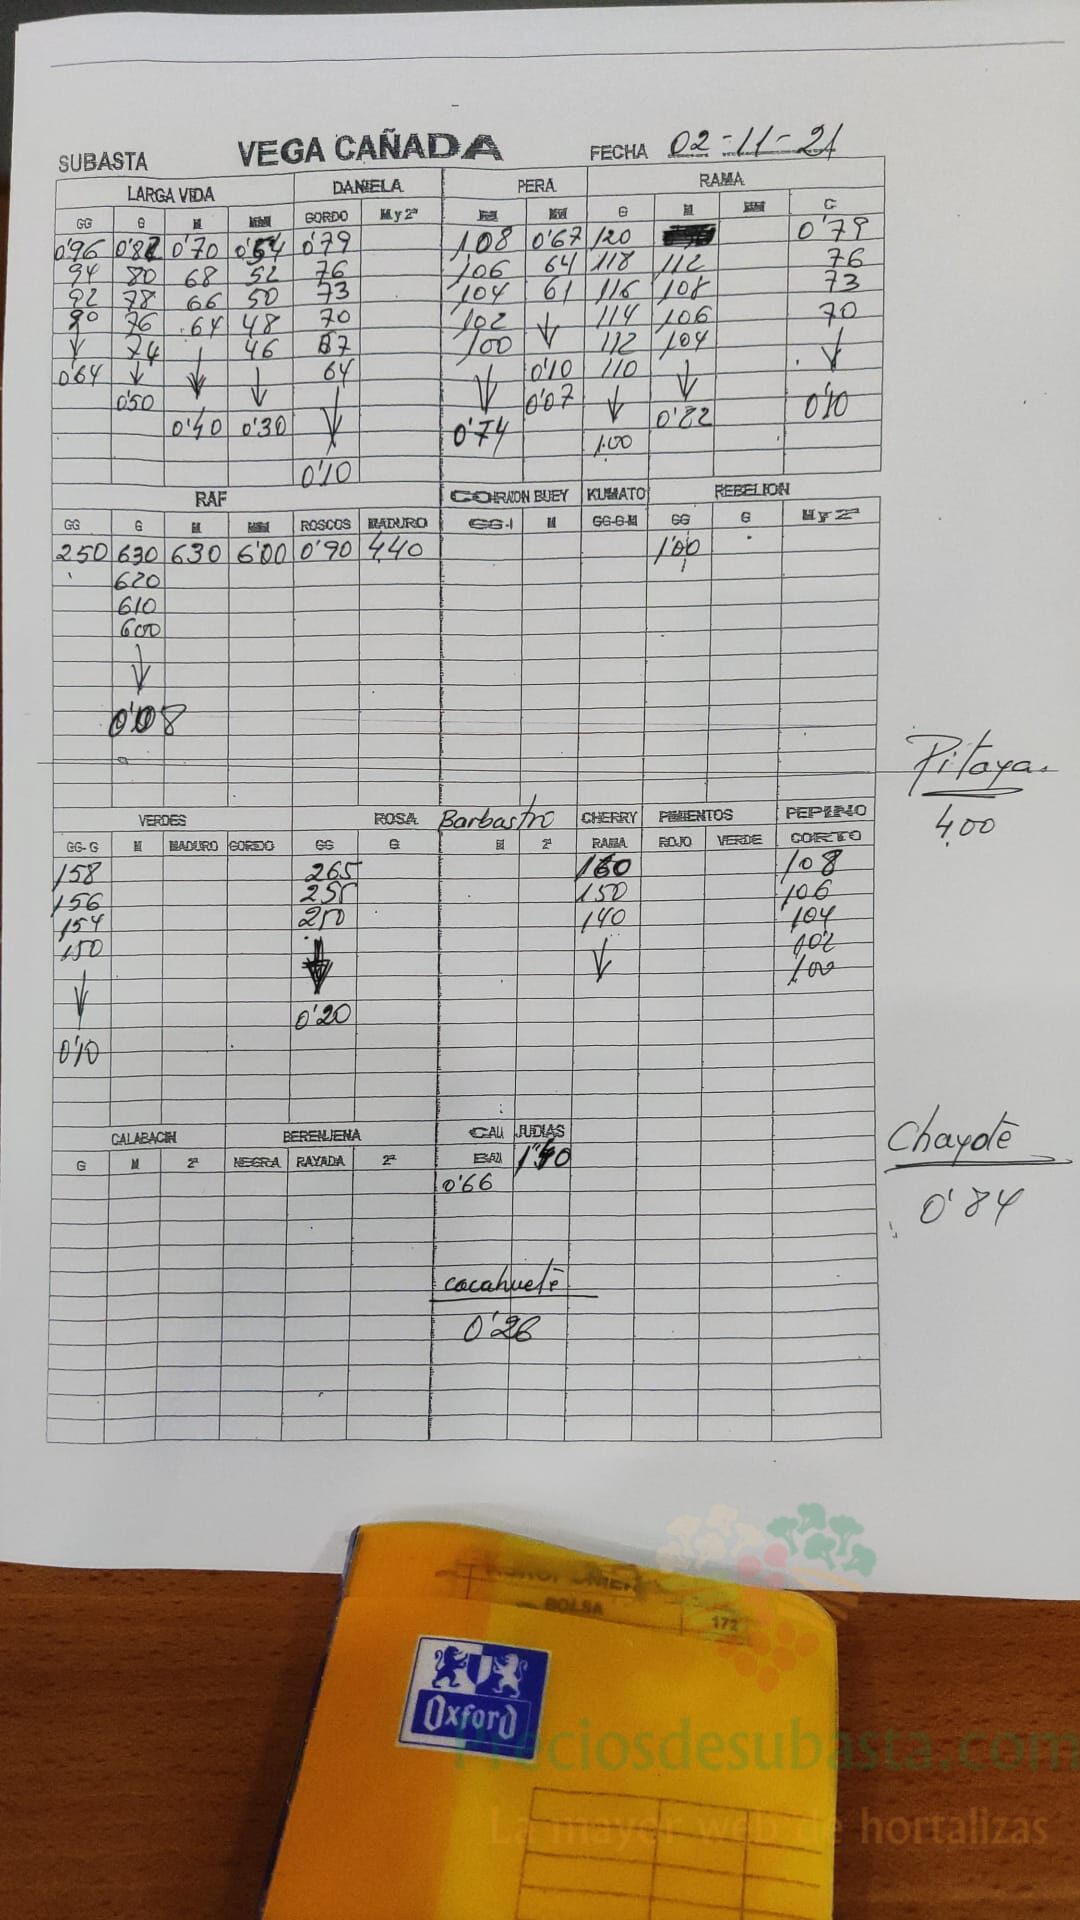 SUBASTA VEGA CAÑADA FECHA 02-11-21
LARGA VIDA DANIELA PERA RAMA
GG G M MM GORDO M y 2ª M MM G M MM C
0'96 0'82 0'70 0'54 0'79 108 0'67 120 0'79
94 80 68 52 76 106 64 118 112 76
92 78 66 50 73 104 61 116 108 73
90 76 64 48 70 102 ↓ 114 106 70
↓ 74 ↓ 46 67 100 112 104 ↓
0'64 ↓ ↓ 64 ↓ 0'10 110 ↓
0'50 ↓ 0'07 ↓ 0'82 0'10
0'40 0'30 0'74 1.00
0'10
RAF CORAZON BUEY KUMATO REBELION
GG G M MM ROSCOS MADURO GG-1 M GG-G-M GG G M y 2ª
250 630 630 6'00 0'90 4.40 1'00
620
610
600
↓
0'08
Pitaya.
4.00
VERDES ROSA Barbastro CHERRY PIMIENTOS PEPINO
GG-G M MADURO GORDO GG G M 2ª RAMA ROJO VERDE CORTO
158 265 160 108
156 255 150 106
154 250 140 104
150 ↓ ↓ 102
↓ 100
0'20
0'10
CALABACIN BERENJENA CAL JUDIAS
G M 2ª NEGRA RAYADA 2ª BAL
0'66
Chayote
0'84
cacahuete
0'26
BOLSA
172
Oxford
Preciosdesubasta.com
La mayor web de hortalizas